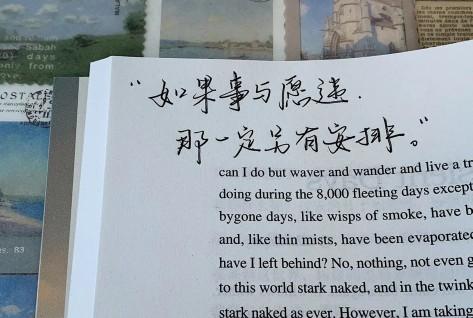 “如果事与愿违.
那一定另有安排。”
can I do but waver and wander and live a tr
doing during the 8,000 fleeting days except
bygone days, like wisps of smoke, have b
and, like thin mists, have been evaporated
have I left behind? No, nothing, not even g
to this world stark naked, and in the twink
stark naked as ever. However, I am taking
Sabah
days
only
from
POSTAL